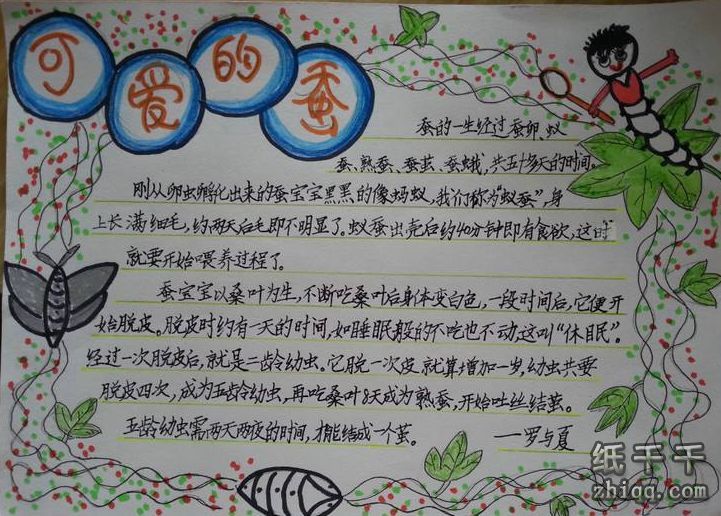 可爱的蚕
蚕的一生经过蚕卵、蚁
蚕、熟蚕、蚕茧、蚕蛾,共五十多天的时间
刚从卵虫孵化出来的蚕宝宝黑黑的像蚂蚁,我们称为“蚁蚕”,身
上长满细毛,约两天后毛即不明显了。蚁蚕出壳后约40分钟即有食欲,这时
就要开始喂养过程了。
蚕宝宝以桑叶为生,不断吃桑叶后身体变白色,一段时间后,它便开
始脱皮。脱皮时约有一天的时间,如睡眠般的不吃也不动,这叫“休眠”。
经过一次脱皮后,就是二龄幼虫。它脱一次皮就算增加一岁,幼虫共要
脱皮四次,成为五龄幼虫,再吃桑叶8天成为熟蚕,开始吐丝结茧。
五龄幼虫需两天两夜的时间,才能结成一个茧。 ——罗与夏
纸千千
zhiqq.com